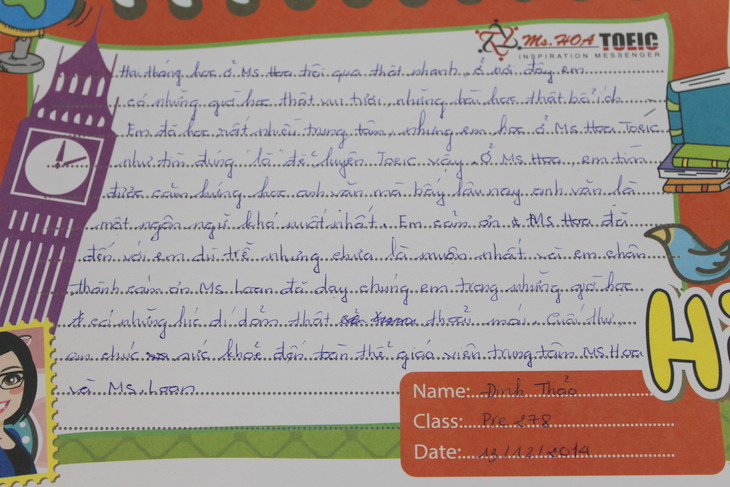 Ms. HOA TOEIC
INSPIRATION MESSENGER
Hai tháng học ở Ms Hoa trôi qua thật nhanh, ở nơi đây em
có những giờ học thật vui tươi, những bài học thật bổ ích.
Em đã học rất nhiều trung tâm, nhưng em học ở Ms Hoa Toeic
như tìm đúng "lò" để luyện Toeic vậy. Ở Ms Hoa, em tìm
được cảm hứng học anh văn mà bấy lâu nay anh văn là
một ngôn ngữ khó nuốt nhất. Em cảm ơn Ms Hoa đã
đến với em dù trễ nhưng chưa là muộn nhất và em chân
thành cảm ơn Ms Loan đã dạy chúng em trong những giờ học
có những lúc dí dỏm thật thoải mái. Cuối thư,
em chúc sức khoẻ đến toàn thể giáo viên trung tâm Ms Hoa
và Ms. Loan
Hi
Name: Đinh Thảo
Class: Pre 278
Date: 13/12/2014